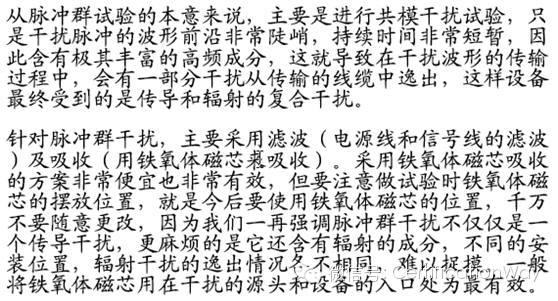 从脉冲群试验的本意来说，主要是进行共模干扰试验，只
是干扰脉冲的波形前沿非常陡峭，持续时间非常短暂，因
此含有极其丰富的高频成分，这就导致在干扰波形的传输
过程中，会有一部分干扰从传输的线缆中逸出，这样设备
最终受到的是传导和辐射的复合干扰。
针对脉冲群干扰，主要采用滤波（电源线和信号线的滤波
）及吸收（用铁氧体磁芯来吸收）。采用铁氧体磁芯吸收
的方案非常便宜也非常有效，但要注意做试验时铁氧体磁
芯的摆放位置，就是今后要使用铁氧体磁芯的位置，千万
不要随意更改，因为我们一再强调脉冲群干扰不仅仅是一
个传导干扰，更麻烦的是它还含有辐射的成分，不同的安
装位置，辐射干扰的逸出情况各不相同，难以捉摸。一般
将铁氧体磁芯用在干扰的源头和设备的入口处为最有效。
微信号: CertificationWay